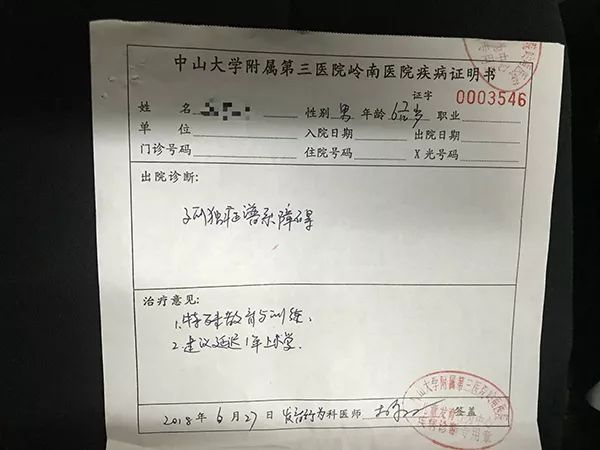 中山大学附属第三医院岭南医院疾病证明书
证字 0003546
姓名 性别 男 年龄 6岁 职业
单位 入院日期 出院日期
门诊号码 住院号码 X光号码
出院诊断:
孤独症谱系障碍
治疗意见:
1.特殊教育与训练、
2.建议延迟1年上学。
2018年6月27日 发育行为科医师 签盖
中山大学附属第三医院岭南医院
疾病诊断专用章